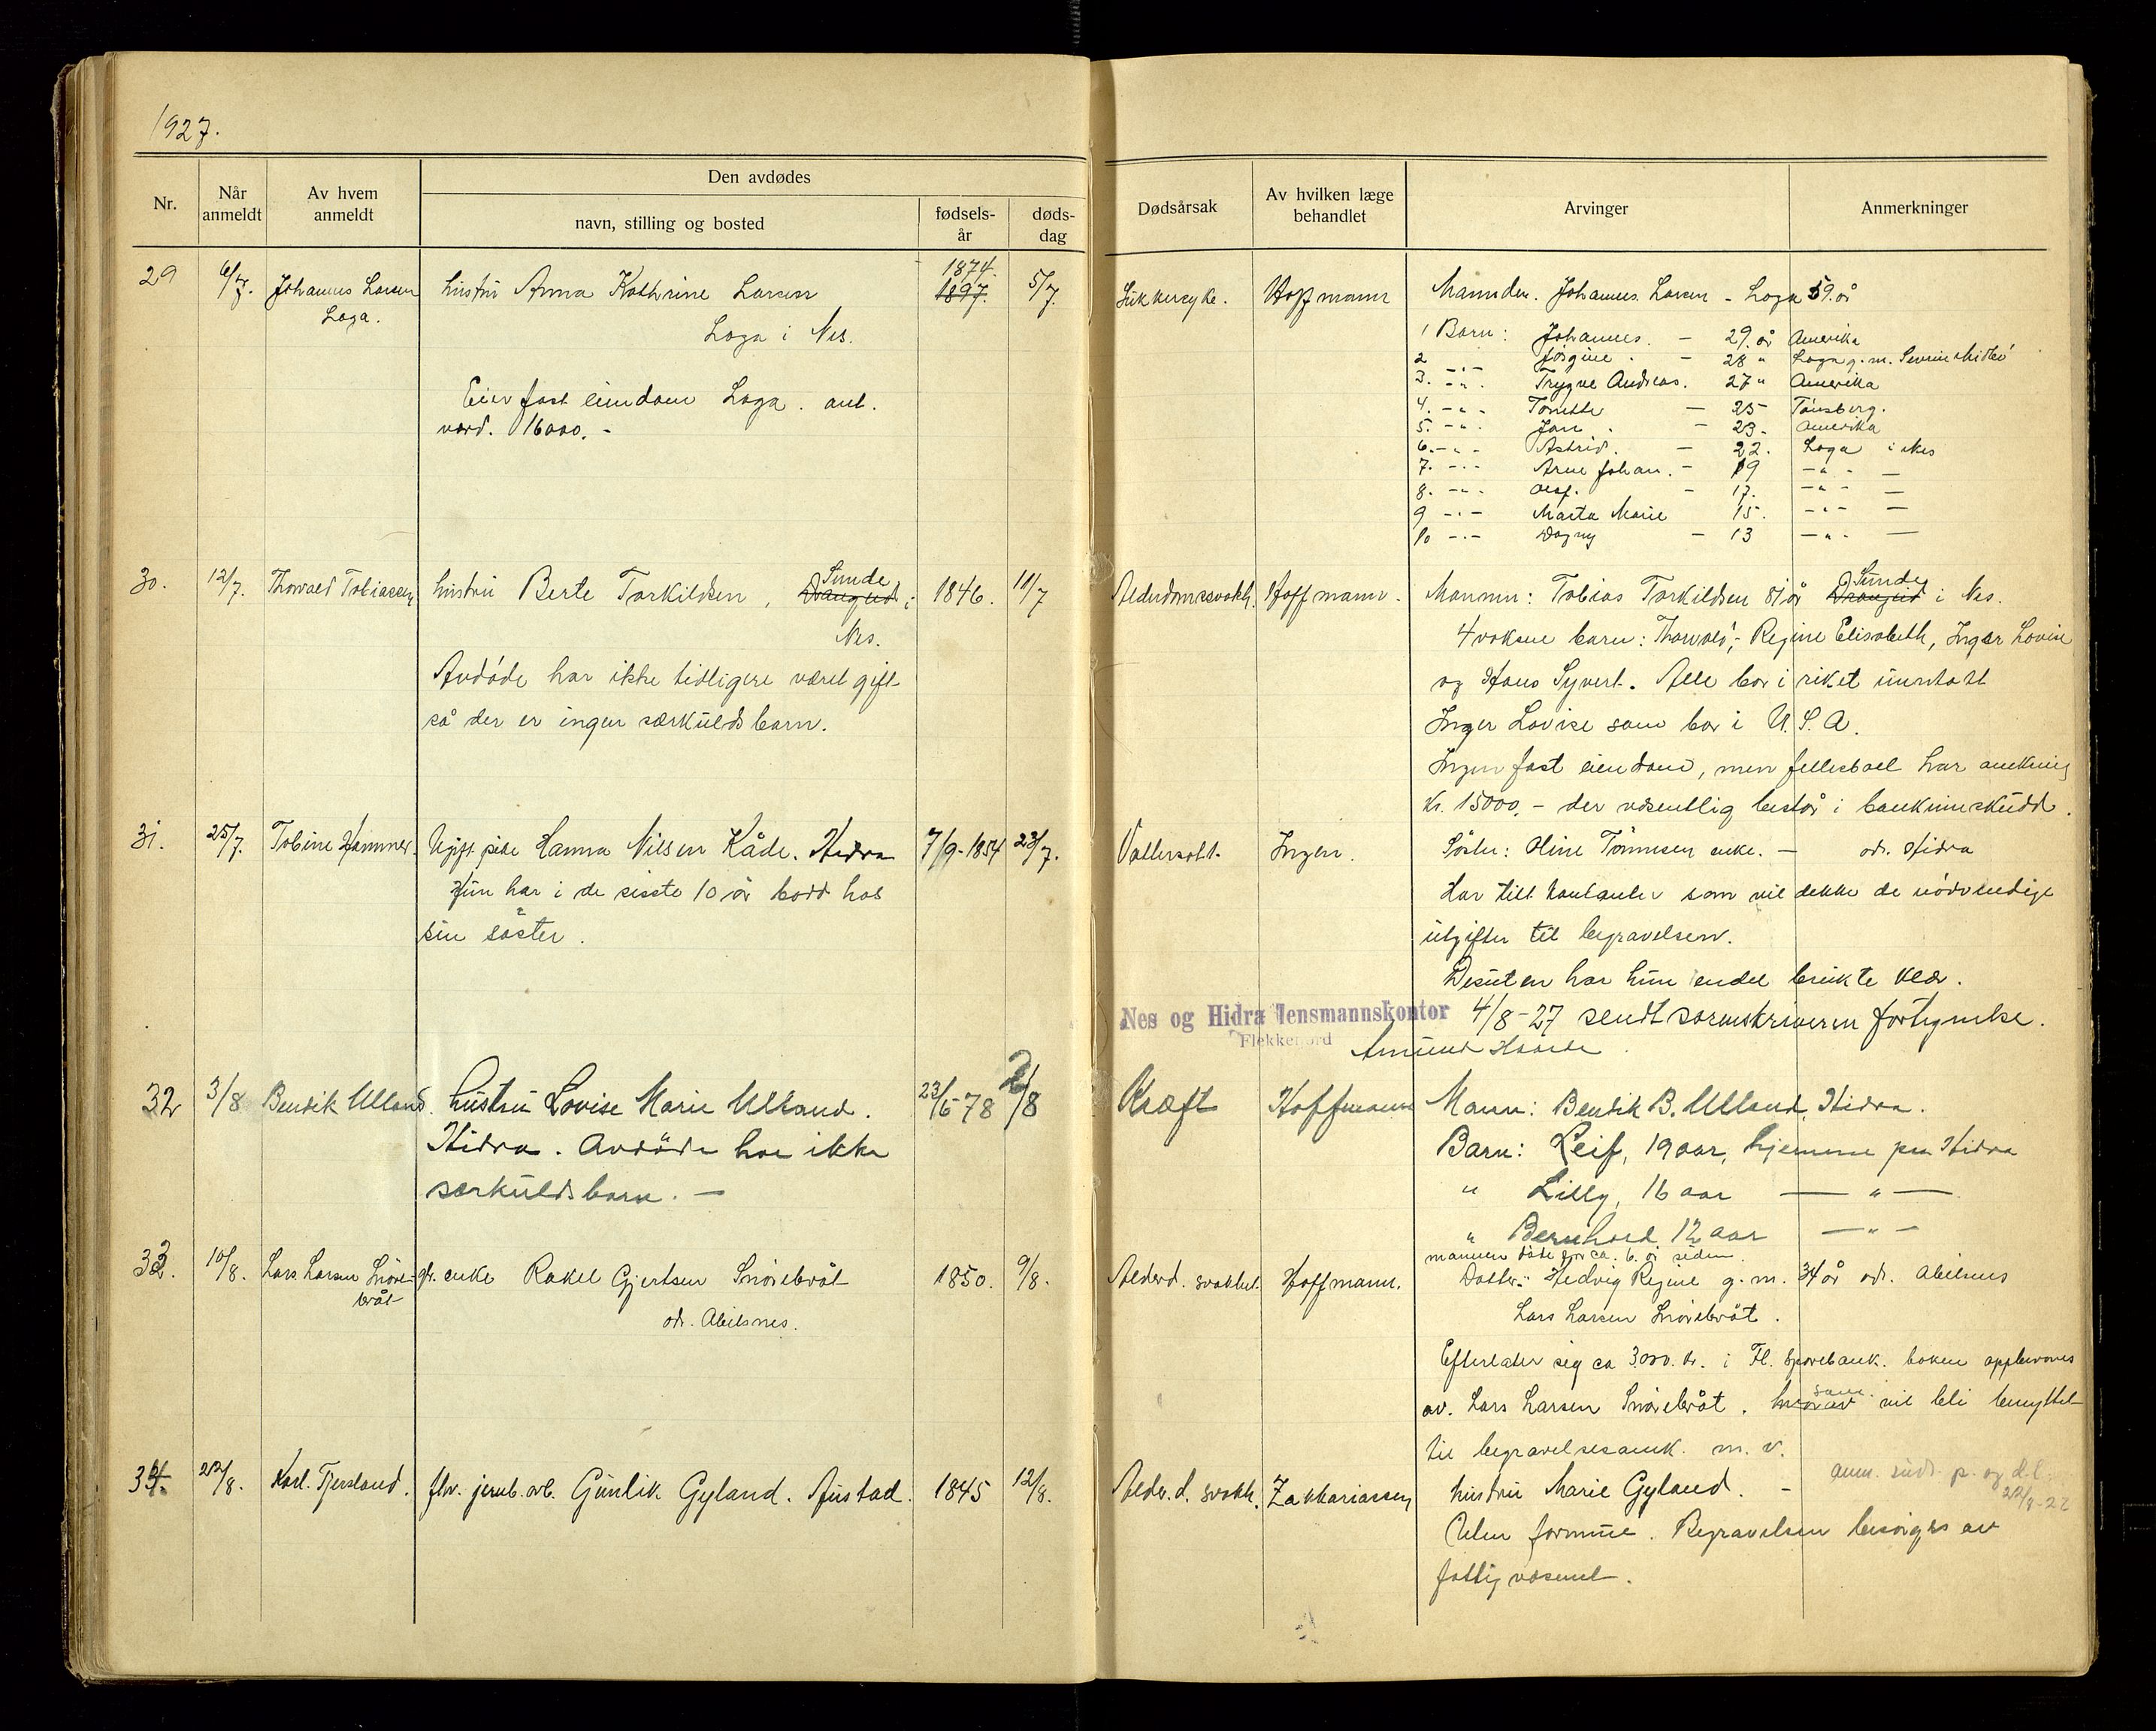 1927.
Nr.
Når anmeldt
Av hvem anmeldt
Den avdødes
navn, stilling og bosted
fødsels-år
døds-dag
Dødsårsak
Av hvilken læge behandlet
Arvinger
Anmerkninger
29 6/7. Johannes Larsen hustru Anna Kathrine Larsen 1874. 1897. 5/7. Sukkersyke. Hoffmann Mannden. Johannes Larsen - Loga 59. år
Loga. Loga i Nes.
1 Barn: Johannes. - 29. år Amerika
2 -"- Jørgine. - 28 " Loga g. m. Severin Midbø
3. -"- Trygve Andreas. 27 " Amerika
4. -"- Tomette - 25 - Tønsberg.
5. -"- Jan. - 23 - Amerika
6. -"- Astrid. - 22. Loga i Nes
7. -"- Arne Johan. - 19 -"- -
8. -"- - 17. -"- -
9 -"- Marta Marie 15. -"- -
10 -"- Dagny - 13 -"- -
Eier fast eiendom Loga. ant.
verd. 16000.-
30. 12/7. Thorvald Tobiassen hustru Berte Torkildsen, Sunde Drangeid i 1846. 11/7 Alderdomssvakh. Hoffmann. Mannen: Tobias Torkildsen 81 år Sunde Drangeid i Nes.
Nes. 4 voksne barn: Thorvald, Regine Elisabeth, Inger Lovise
Avdøde har ikke tidligere været gift og Hans Syvert. Alle bor i riket unntatt
så der er ingen særkuldsbarn. Inger Lovise som bor i U.S.A.
Ingen fast eiendom, men fellesboet har
Kr. 15000.- der vesentlig består i bankinnskudd.
31. 25/7. Tobine Hamner. Ugift pike Hanna Nilsen Kåde. Hidra 7/9-1854 23/7. Vattersott. Ingen. Søster: Oline Tønnesen enke. - adr. Hidra
Hun har i de siste 10 år bodd hos Har litt kontanter som vil dekke de nødvendige
sin søster. utgifter til begravelsen.
Desuten har hun endel brukte klær.
Nes og Hidra lensmannskontor 4/8-27 sendt sorenskriveren fortegnelse.
Flekkefjord Amund
32 3/8 Bendik Ulland. hustru Lovise Marie Ulland. 23/6-78 2/8 Kræft Hoffmann Mann: Bendik B. Ulland, Hidra.
Hidra. Avdøde har ikke Barn: Leif, 19 aar, hjemme paa Hidra
særkuldsbarn. - " Lilly, 16 aar - " -
" Bernhard 12 aar - " -
mannen døde for ca. 6 år siden
33. 10/8. Lars Larsen Snørebråt gl. enke Rakel Gjertsen Snørebråt 1850. 9/8. Alderd. svakhet. Hoffmann. Datter: Hedvig Regine g. m. 34 år adr. Abelsnes
adr. Abelsnes. Lars Larsen Snørebråt.
Efterlater sig ca 3.000. kr. i Fl. Sparebank. boken oppbevares
av. Lars Larsen Snørebråt. som vil bli benyttet
til begravelsesomk. m. v.
34. 22/8. Karl. Tjersland. fhv. jernb. arb. Gunlik Gyland. Austad. 1845 12/8. Alder.d. svakh. Zakkariassen hustru Marie Gyland. - anm. sendt p. og d.l.
22/8-27
Uten formue. Begravelsen besørges av
fattigvæsenet.